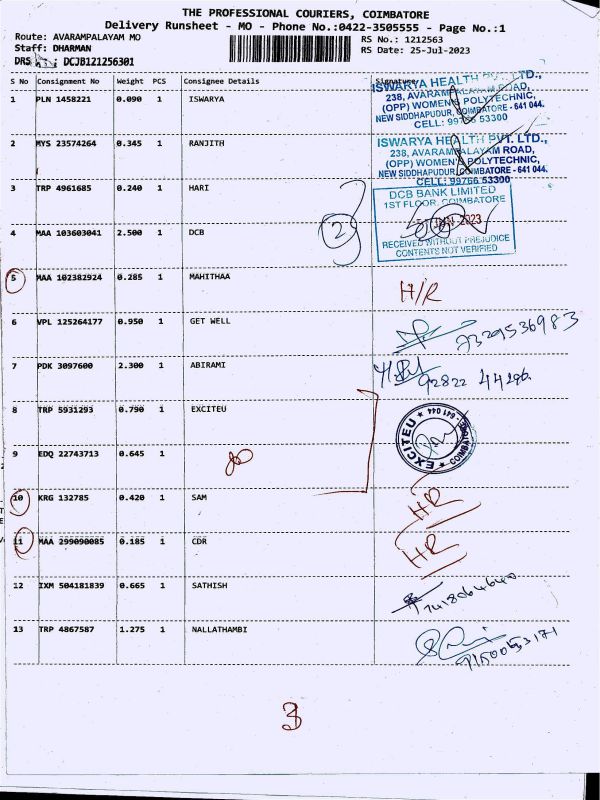 THE PROFESSIONAL COURIERS, COIMBATORE
Delivery Runsheet - MO - Phone No.:0422-3505555 - Page No.:1
Route: AVARAMPALAYAM MO
RS No.: 1212563
Staff: DHARMAN
RS Date: 25-Jul-2023
DRS : DCJB121256301
S No Consignment No Weight PCS Consignee Details Signature
1 PLN 1458221 0.090 1 ISWARYA
ISWARYA HEALTH PVT. LTD.,
238, AVARAMPALAYAM ROAD,
(OPP) WOMEN'S POLYTECHNIC,
NEW SIDDHAPUDUR, COIMBATORE - 641 044.
CELL: 99766 53300
2 MYS 23574264 0.345 1 RANJITH
ISWARYA HEALTH PVT. LTD.,
238, AVARAMPALAYAM ROAD,
(OPP) WOMEN'S POLYTECHNIC,
NEW SIDDHAPUDUR, COIMBATORE - 641 044.
CELL: 99766 53300
3 TRP 4961685 0.240 1 HARI
DCB BANK LIMITED
1ST FLOOR, COIMBATORE
4 MAA 103603041 2.500 1 DCB
2
JAN 2023
RECEIVED WITHOUT PREJUDICE
CONTENTS NOT VERIFIED
5 MAA 102382924 0.285 1 MAHITHAA
H/R
6 VPL 125264177 0.950 1 GET WELL
7329536983
7 PDK 3097600 2.300 1 ABIRAMI
92822
8 TRP 5931293 0.790 1 EXCITEU
EXCITEU COIMBATORE - 641 044
9 EDQ 22743713 0.645 1
10 KRG 132785 0.420 1 SAM
HR
11 MAA 299090085 0.185 1 CDR
HR
12 IXM 504181839 0.665 1 SATHISH
13 TRP 4867587 1.275 1 NALLATHAMBI
3